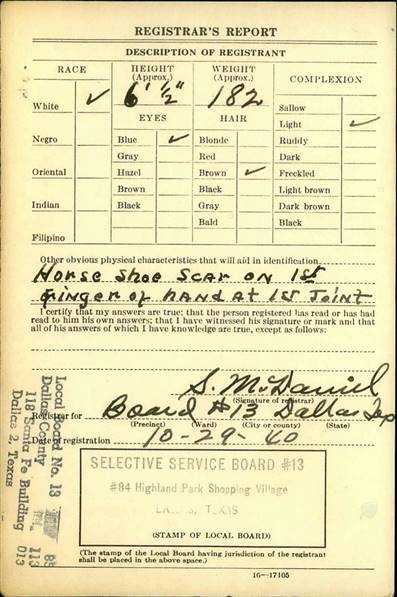 REGISTRAR'S REPORT
DESCRIPTION OF REGISTRANT
RACE
HEIGHT (Approx.)
WEIGHT (Approx.)
COMPLEXION
White ✓
6' ½"
182
Sallow
EYES
HAIR
Light ✓
Negro
Blue ✓
Blonde
Ruddy
Gray
Red
Dark
Oriental
Hazel
Brown ✓
Freckled
Brown
Black
Light brown
Indian
Black
Gray
Dark brown
Bald
Black
Filipino
Other obvious physical characteristics that will aid in identification
Horse Shoe Scar on 1st
Finger of hand at 1st Joint
I certify that my answers are true; that the person registered has read or has had
read to him his own answers; that I have witnessed his signature or mark and that
all of his answers of which I have knowledge are true, except as follows:
S. McDaniel
(Signature of registrar)
Registrar for Board #13 Dallas Tex
(Precinct) (Ward) (City or county) (State)
Date of registration 10-29-40
Local Board No. 13
Dallas County
118 Santa Fe Building
Dallas 2, Texas
113
013
SELECTIVE SERVICE BOARD #13
#84 Highland Park Shopping Village
DALLAS, TEXAS
(STAMP OF LOCAL BOARD)
(The stamp of the Local Board having jurisdiction of the registrant
shall be placed in the above space.)
16—17105